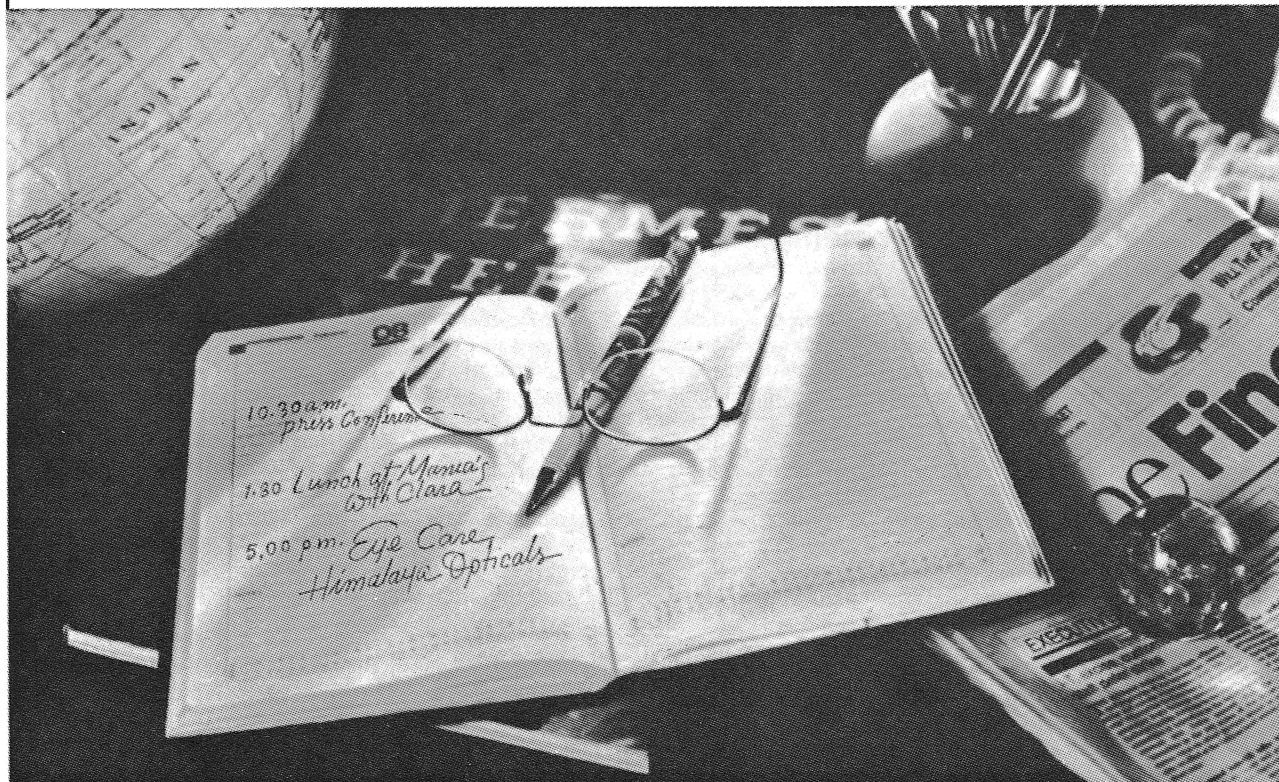 INDIAN
HERMES
08
10.30 a.m.
press Conference
1.30 Lunch at Mama's
with Clara
5.00 pm. Eye Care
Himalaya Opticals
WILL THE
Fin
EXECUTIVE